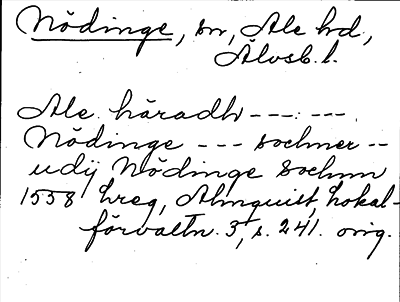 Nödinge, sn, Ale hd,
Älvsb. l.
Ale häradh --- . ---.
Nödinge --- sochner --
udij Nödinge Sochnn
1558 hreg, Almquist, Lokal-
förvaltn. 3, s. 241. orig.